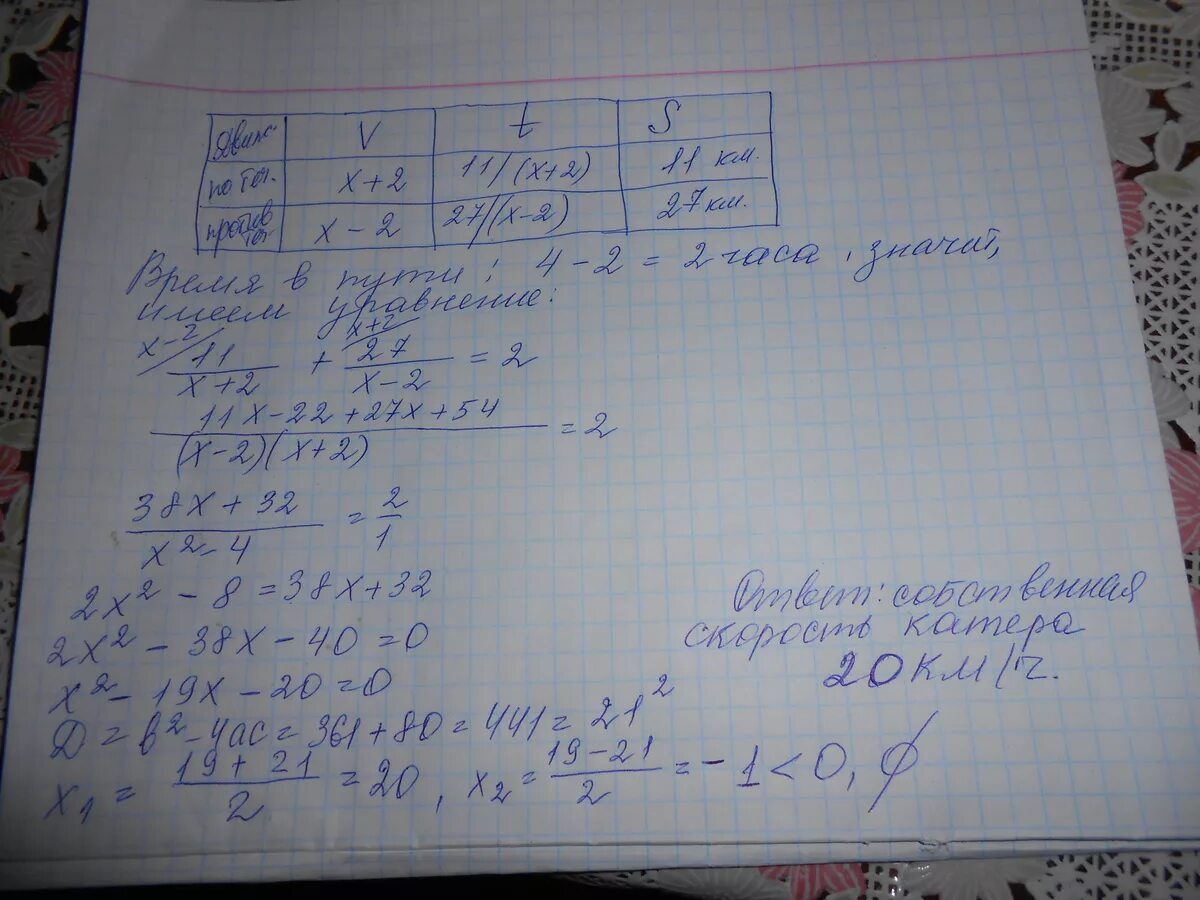 Движ. V t S
по теч. x+2 11/(x+2) 11 км.
против теч. x-2 27/(x-2) 27 км.
Время в пути: 4-2=2 часа, значит,
имеем уравнение:
x-2/ x+2/
11/(x+2) + 27/(x-2) = 2
(11x-22+27x+54)/((x-2)(x+2)) = 2
(38x+32)/(x²-4) = 2/1
2x²-8=38x+32
2x²-38x-40=0
x²-19x-20=0
D=b²-4ac=361+80=441=21²
x₁=(19+21)/2=20, x₂=(19-21)/2=-1<0, ∅
Ответ: собственная
скорость катера
20 км/ч.